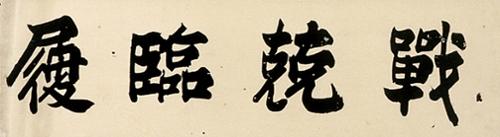 戰兢臨履